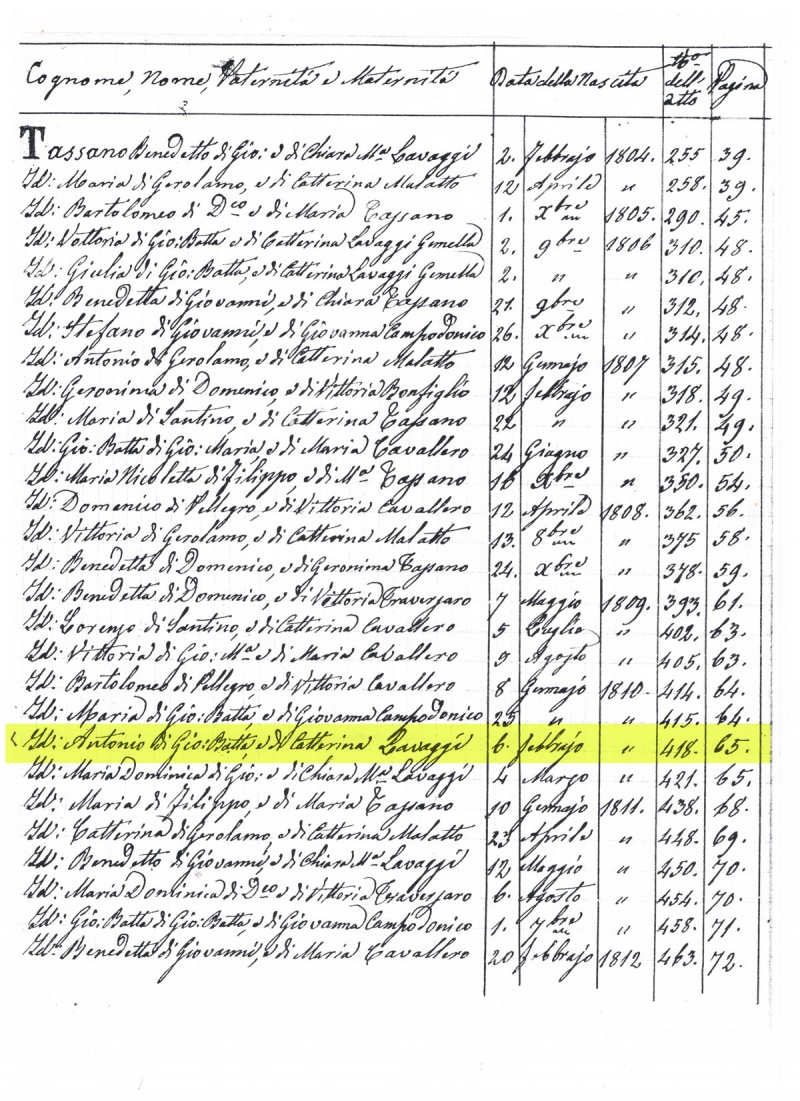 Cognome, Nome, Paternità e Maternità Data della Nascita No. dell' atto Pagina
Tassano Benedetto di Gio: e di Chiara Ma Lavaggi 2. Febbrajo 1804. 255 39.
Id: Maria di Gerolamo, e di Catterina Malatto 12 Aprile " 258. 39.
Id: Bartolomeo di Dco e di Maria Tassano 1. Xbre 1805. 290. 45.
Id: Vottoria di Gio: Batta e di Catterina Lavaggi Gemella 2. 9bre 1806 310. 48.
Id: Giulia di Gio: Batta, e di Catterina Lavaggi Gemella 2. " " 310. 48.
Id: Benedetta di Giovanni, e di Chiara Tassano 21. 9bre " 312. 48.
Id: Stefano di Giovanni, e di Giovanna Campodonico 26. Xbre " 314. 48.
Id: Antonio di Gerolamo, e di Catterina Malatto 12 Gennajo 1807 315. 48.
Id: Geronima di Domenico, e di Vittoria Bonfiglio 12 febbrajo " 318. 49.
Id: Maria di Santino, e di Catterina Tassano 22 " " 321. 49.
Id: Gio: Batta di Gio: Maria e di Maria Cavallero 24 Giugno " 327. 50.
Id: Maria Nicoletta di Filippo, e di Ma Tassano 16 Xbre " 350. 54.
Id: Domenico di Pellegro, e di Vittoria Cavallero 12 Aprile 1808. 362. 56.
Id: Vittoria di Gerolamo, e di Catterina Malatto 13. 8bre " 375 58.
Id: Benedetta di Domenico, e di Geronima Tassano 24. Xbre " 378. 59.
Id: Benedetta di Domenico, e di Vittoria Traversaro 7 Maggio 1809. 393. 61.
Id: Lorenzo di Santino, e di Catterina Cavallero 5 Luglio " 402. 63.
Id: Vittoria di Gio: Ma e di Maria Cavallero 9 Agosto " 405. 63.
Id: Bartolomeo di Pellegro, e di Vittoria Cavallero 8 Gennajo 1810. 414. 64.
Id: Maria di Gio: Batta, e di Giovanna Campodonico 25 " " 415. 64.
Id: Antonio di Gio: Batta e di Catterina Lavaggi 6. febbrajo " 418. 65.
Id: Maria Dominica di Gio: e di Chiara Ma Lavaggi 4 Marzo " 421. 65.
Id: Maria di Filippo, e di Maria Tassano 10 Gennajo 1811. 438. 68.
Id: Catterina di Gerolamo, e di Catterina Malatto 23 Aprile " 448. 69.
Id: Benedetto di Giovanni, e di Chiara Ma Lavaggi 12 Maggio " 450. 70.
Id: Maria Dominica di Dco e di Vittoria Traversaro 6. Agosto " 454. 70.
Id: Gio: Batta di Gio: Batta, e di Giovanna Campodonico 1. 7bre " 458. 71.
Id: Benedetta di Giovanni, e di Maria Cavallero 20 febbrajo 1812 463. 72.